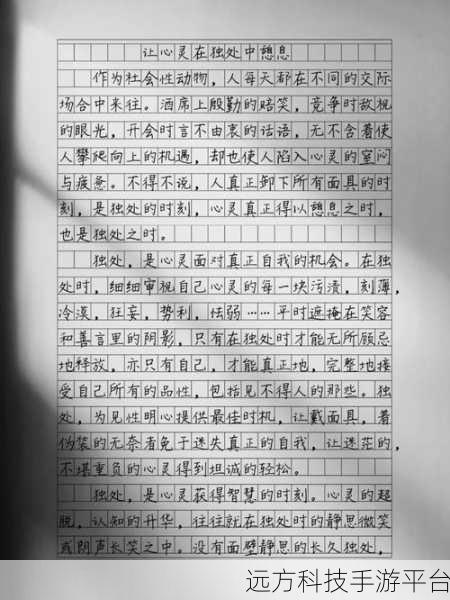 让心灵在独处中憩息
作为社会性动物，人每天都在不同的交际
场合中来往。酒席上殷勤的赔笑，竞争时敌视
的眼光，开会时言不由衷的话语，无不含着使
人攀爬向上的机遇，却也使人陷入心灵的室闷
与疲惫。不得不说，人真正卸下所有面具的时
刻，是独处的时刻，心灵真正得以憩息之时，
也是独处之时。
独处，是心灵面对真正自我的机会。在独
处时，细细审视自己心灵的每一块污渍，刻薄，
冷漠，狂妄，势利，怯弱……平时遮掩在笑容
和善言里的阴影，只有在独处时才能无所顾忌
地释放，亦只有自己，才能真正地，完整地接
受自己所有的品性，包括见不得人的那些。独
处，为见性明心提供最佳时机，让戴面具，着
伪装的无奈者免于迷失真正的自我，让迷茫的，
不堪重负的心灵得到坦诚的轻松。
独处，是心灵获得智慧的时刻。心灵的超
脱，认知的升华，往往就在独处时的静思微笑
或朗声长笑之中。没有面壁静思的长久独处，
远方科技手游平台